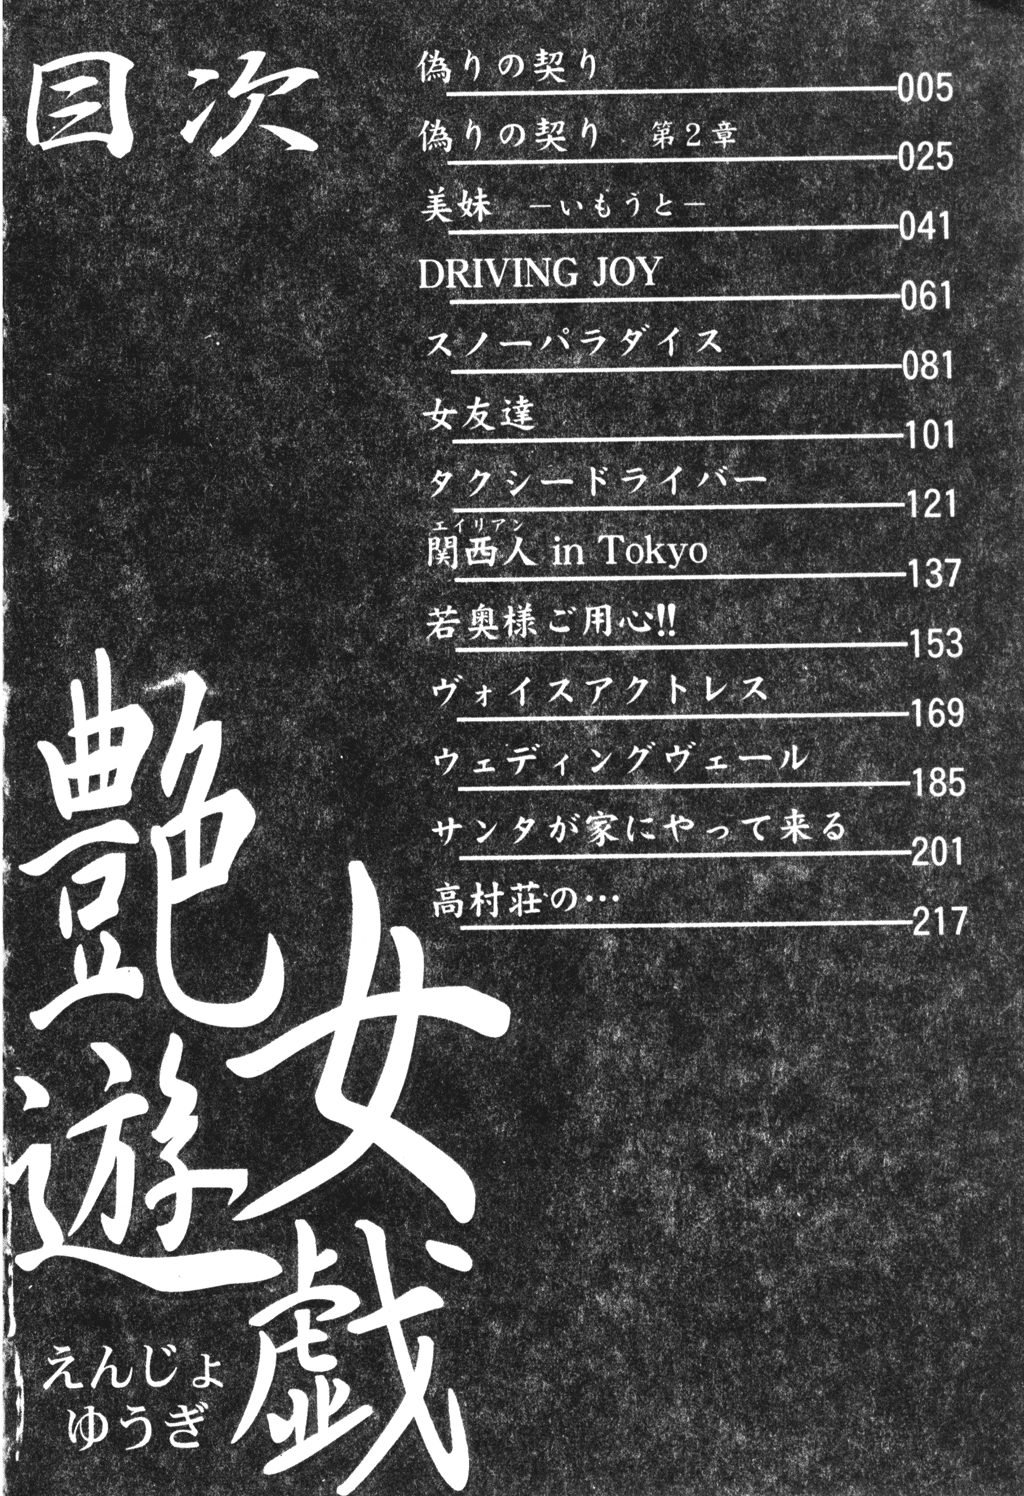 目次
偽りの契り
005
偽りの契り 第2章
025
美妹 −いもうと−
041
DRIVING JOY
061
スノーパラダイス
081
女友達
101
タクシードライバー
121
エイリアン
関西人 in Tokyo
137
若奥様ご用心!!
153
ヴォイスアクトレス
169
ウェディングヴェール
185
サンタが家にやって来る
201
高村荘の…
217
艶女
遊戯
えんじょ
ゆうぎ